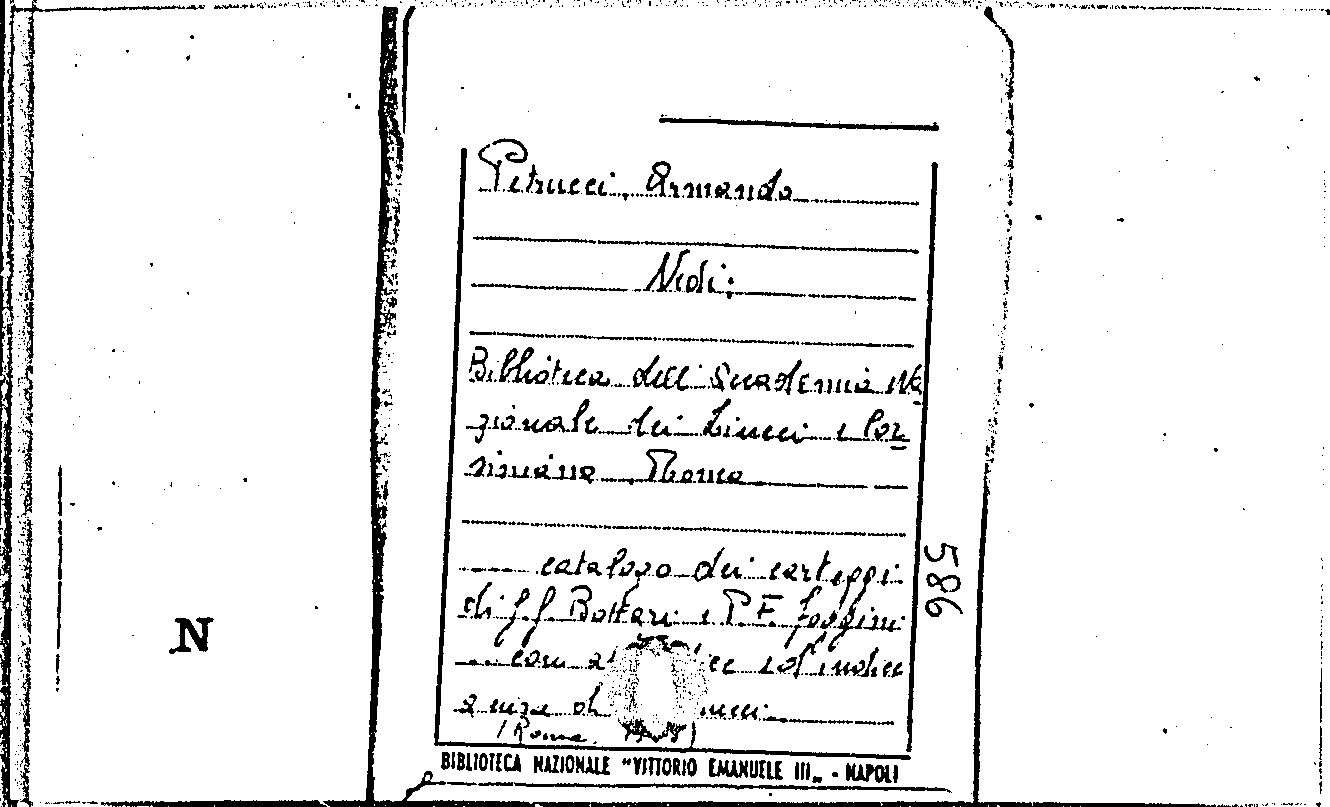 Petrucci, Armando
Vedi:
Biblioteca dell'Accademia Na
zionale dei Lincei e Cor
siniana, Roma
... catalogo dei carteggi
di G. G. Bottari e P. F. Foggini
... con e l'indice
a cura
(Roma.
586
N
BIBLIOTECA NAZIONALE "VITTORIO EMANUELE III„ - NAPOLI